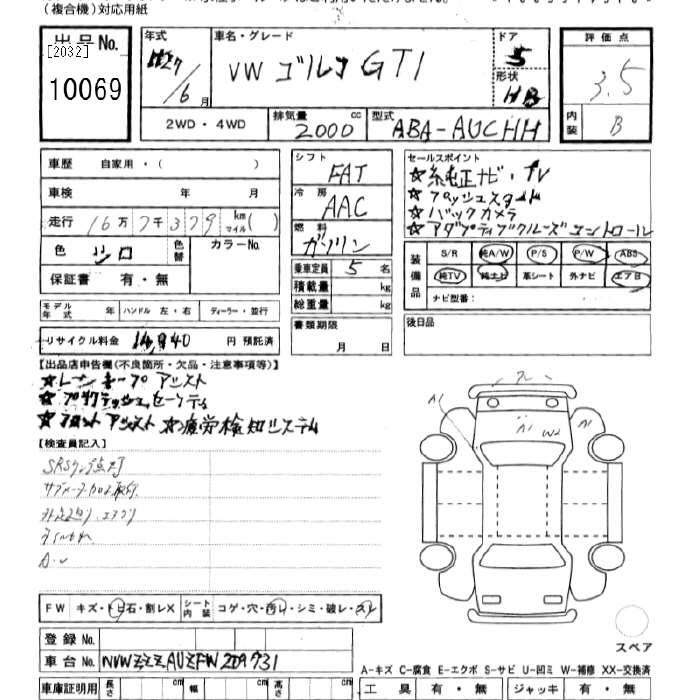 (複合機)対応用紙
出品No.
[2032]
10069
年式
H27/6月
車名・グレード
VW ゴルフ GTI
ドア
5
形状
HB
評価点
3.5
内装
B
2WD・4WD
排気量
2000 cc
型式
ABA-AUCHH
車歴 自家用・( )
車検 年 月
走行 16万7千379 km マイル( )
色 シロ
色替
カラーNo.
保証書 有・無
モデル年式 年 ハンドル 左・右 ディーラー・並行
リサイクル料金 円 預託済
シフト
FAT
冷房
AAC
燃料
ガソリン
乗車定員 5 名
積載量 kg
総重量 kg
書類期限
月 日
セールスポイント
☆純正ナビ・TV
☆プッシュスタート
☆バックカメラ
☆アダプティブクルーズコントロール
装備品
S/R 純A/W P/S P/W ABS
純TV 純ナビ 革シート 外ナビ エアB
ナビ型番:
後日品
【出品店申告欄(不良箇所・欠品・注意事項等)】
☆レーンキープアシスト
☆プリクラッシュセーフティ
☆フロントアシスト ☆疲労検知システム
【検査員記入】
SRSランプ点灯
A1
A1
W2
FW キズ・トビ石・割レX
シート内装 コゲ・穴・汚レ・シミ・破レ・スレ
登録No.
車台No. WVWZZZAUZFW209731
車庫証明用 長さ cm 幅 cm 高さ cm
スペア
A-キズ C-腐食 E-エクボ S-サビ U-凹ミ W-補修 XX-交換済
工具 有・無 ジャッキ 有・無